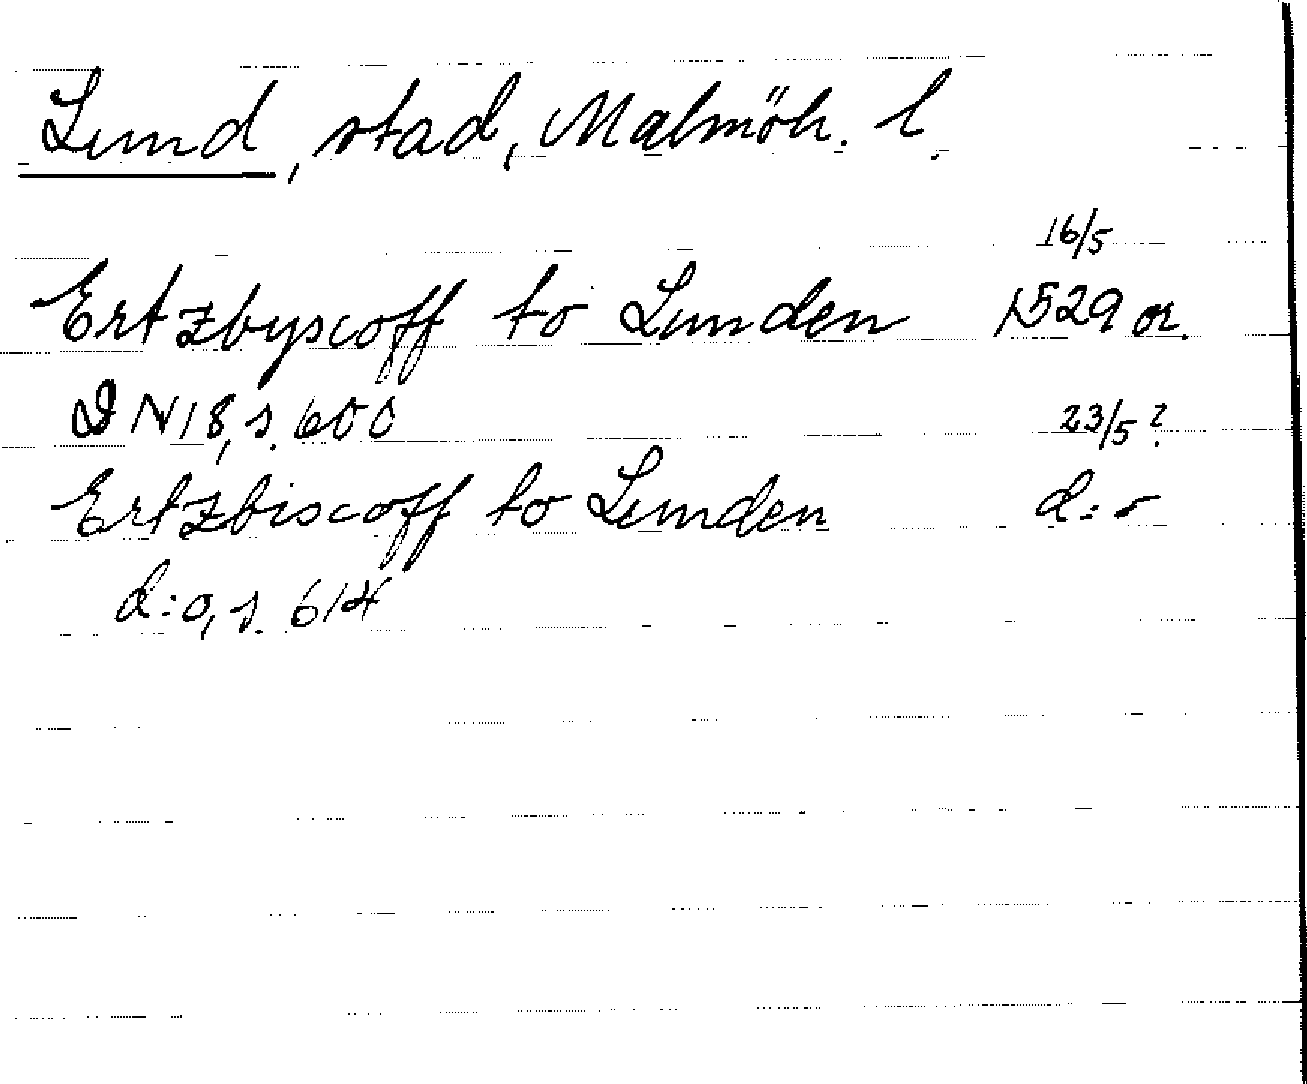 Lund, stad, Malmöh. l.
16/5
Ertzbyscoff to Lunden 1529 or.
DN 18, s. 600 23/5 ?
Ertzbiscoff to Lunden d:o
d:o, s. 614